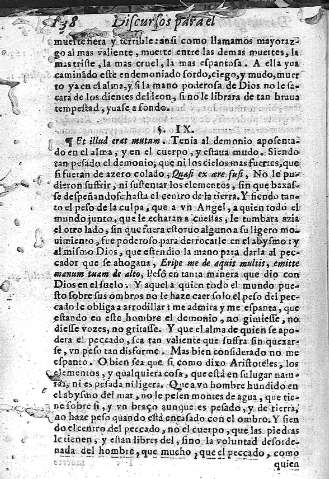 138 Discursos para el
muerte nera y terrible: ansi como llamamos mayoraz-
go al mas valiente, muerte entre las demas muertes, la
mas triste, la mas cruel, la mas espantosa. A ella yva
caminãdo este endemoniado sordo, ciego, y mudo, muer
to ya en el alma, y si la mano poderosa de Dios no le sa-
cara de los dientes del leon, si no le librara de tan braua
tempestad, yuase a fondo.
§. IX.
¶ Et illud erat mutum. Tenia al demonio aposenta-
do en el alma, y en el cuerpo, y estaua mudo. Siendo
tan pesado el demonio, que ni los cielos mas fuertes, que
si fueran de azero colado, Quasi ex ære fusi, No le pu-
dieron suffrir, ni sustentar los elementos, sin que baxas-
se despeñandose hasta el centro de la tierra. Y siendo tan-
to el peso de la culpa, que a vn Angel, a quien todo el
mundo junto, que le echaran a cuestas, le tumbara azia
el otro lado, sin que fuera estoruo alguno a su ligero mo-
uimiento, fue poderoso para derrocarle en el abysmo: y
al mismo Dios, que estendio la mano para darla al pec-
cador que se ahogaua, Eripe me de aquis multis, emitte
manum tuam de alto, Pesò en tanta manera que dio con
Dios en el suelo. Y aquel a quien todo el mundo pue-
sto sobre sus ombros no le haze caer solo el peso del pec-
cado le obliga a arrodillar: me admira y me espanta, que
estando en este hombre el demonio, no gimiesse, no
diesse vozes, no gritasse. Y que el alma de quien se apo-
dera el peccado, sea tan valiente que suffra sin quexar-
se, vn peso tan disforme. Mas bien considerado no me
espanto. O bien sea que si, como dixo Aristoteles, los
elementos, y qualquiera cosa, que està en su lugar natu-
ral, ni es pesada ni ligera. Que a vn hombre hundido en
el abysmo del mar, no le pesen montes de agua, que tie-
ne sobre si, y vn braço aunque es pesado, y de tierra,
no haze peso quando està encasado con el ombro. Y sien
do el centro del peccado, no el cuerpo, que las piedras
le tienen, y estan libres del, sino la voluntad desorde-
nada del hombre, que mucho, que el peccado, como
quien